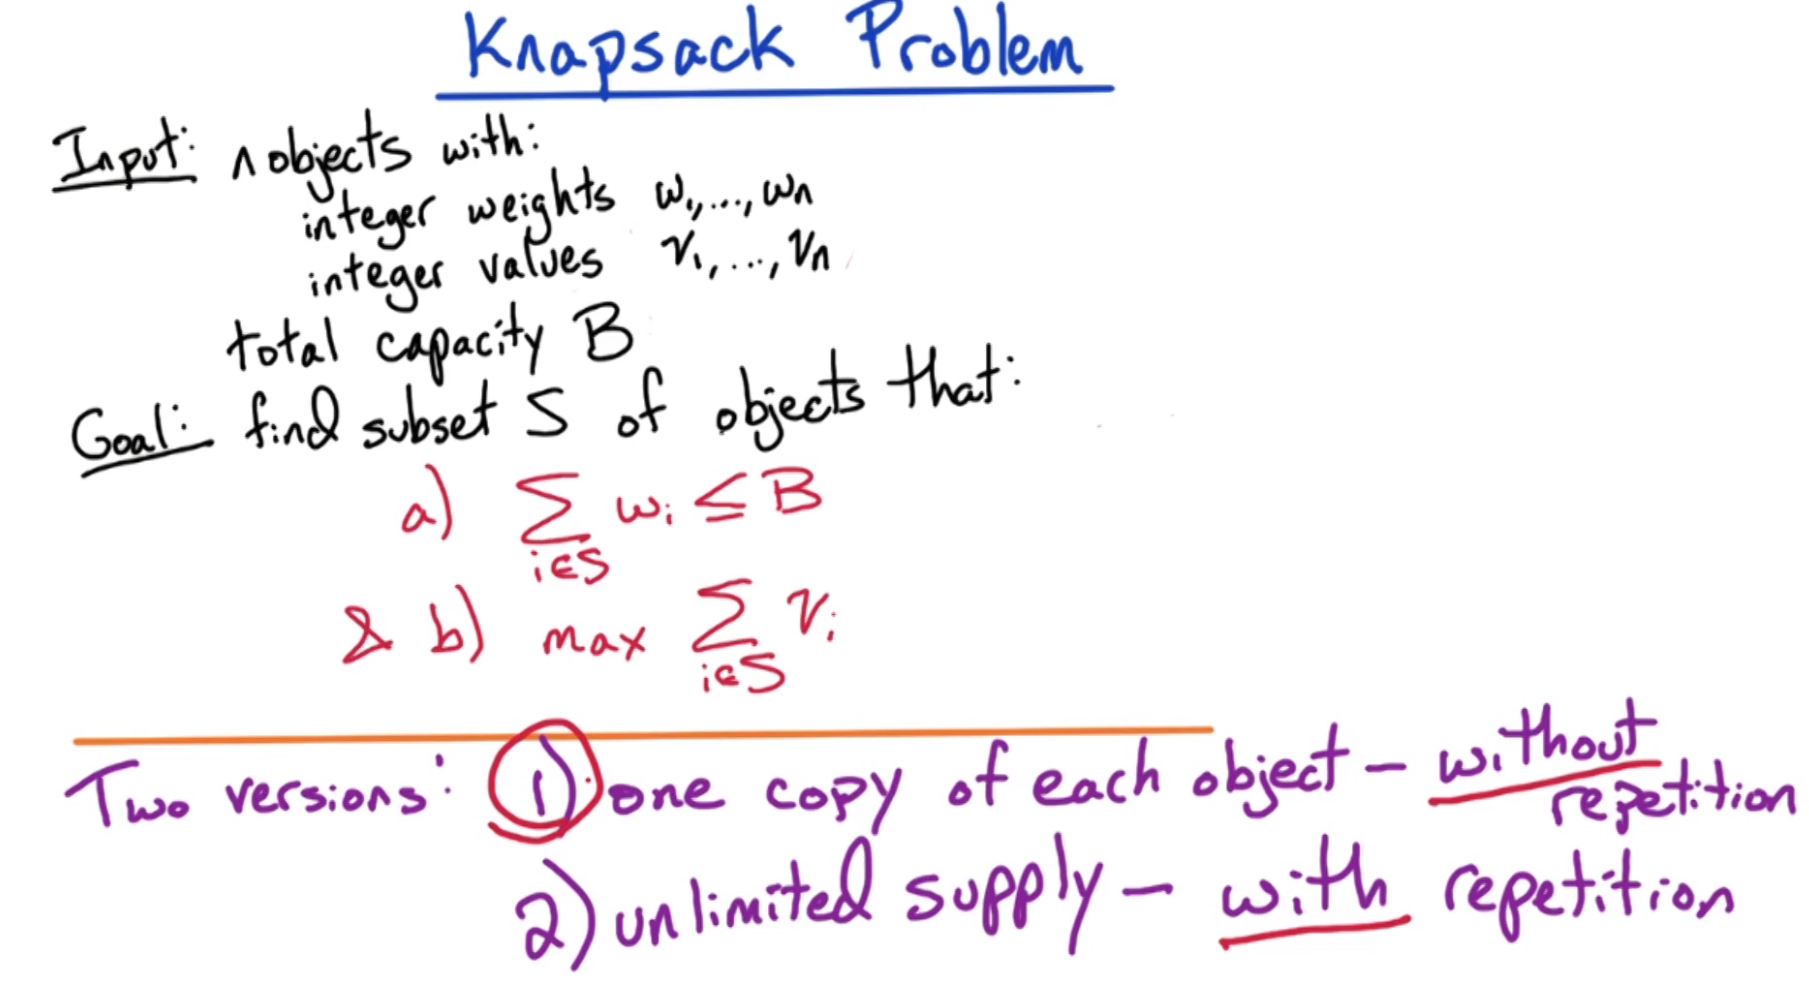 Knapsack Problem
Input: n objects with:
integer weights w₁,...,wₙ
integer values v₁,...,vₙ
total capacity B
Goal: find subset S of objects that:
a) ∑ wᵢ ≤ B
i∈S
& b) max ∑ vᵢ
i∈S
Two versions: 1) one copy of each object - without
repetition
2) unlimited supply - with repetition